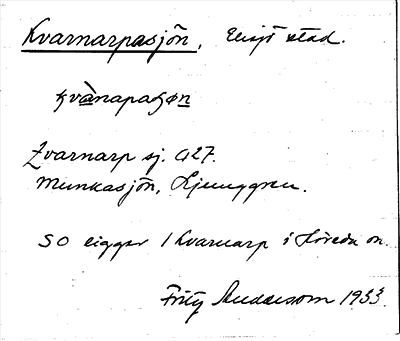 Kvarnarpasjön, Eksjö stad.
kvànapaʃøn
Zvarnarp sj. A27.
Munkasjön, Ljunggren.
SO ligger / Kvarnarp i Höreda sn.
Fritz Andersson 1933.